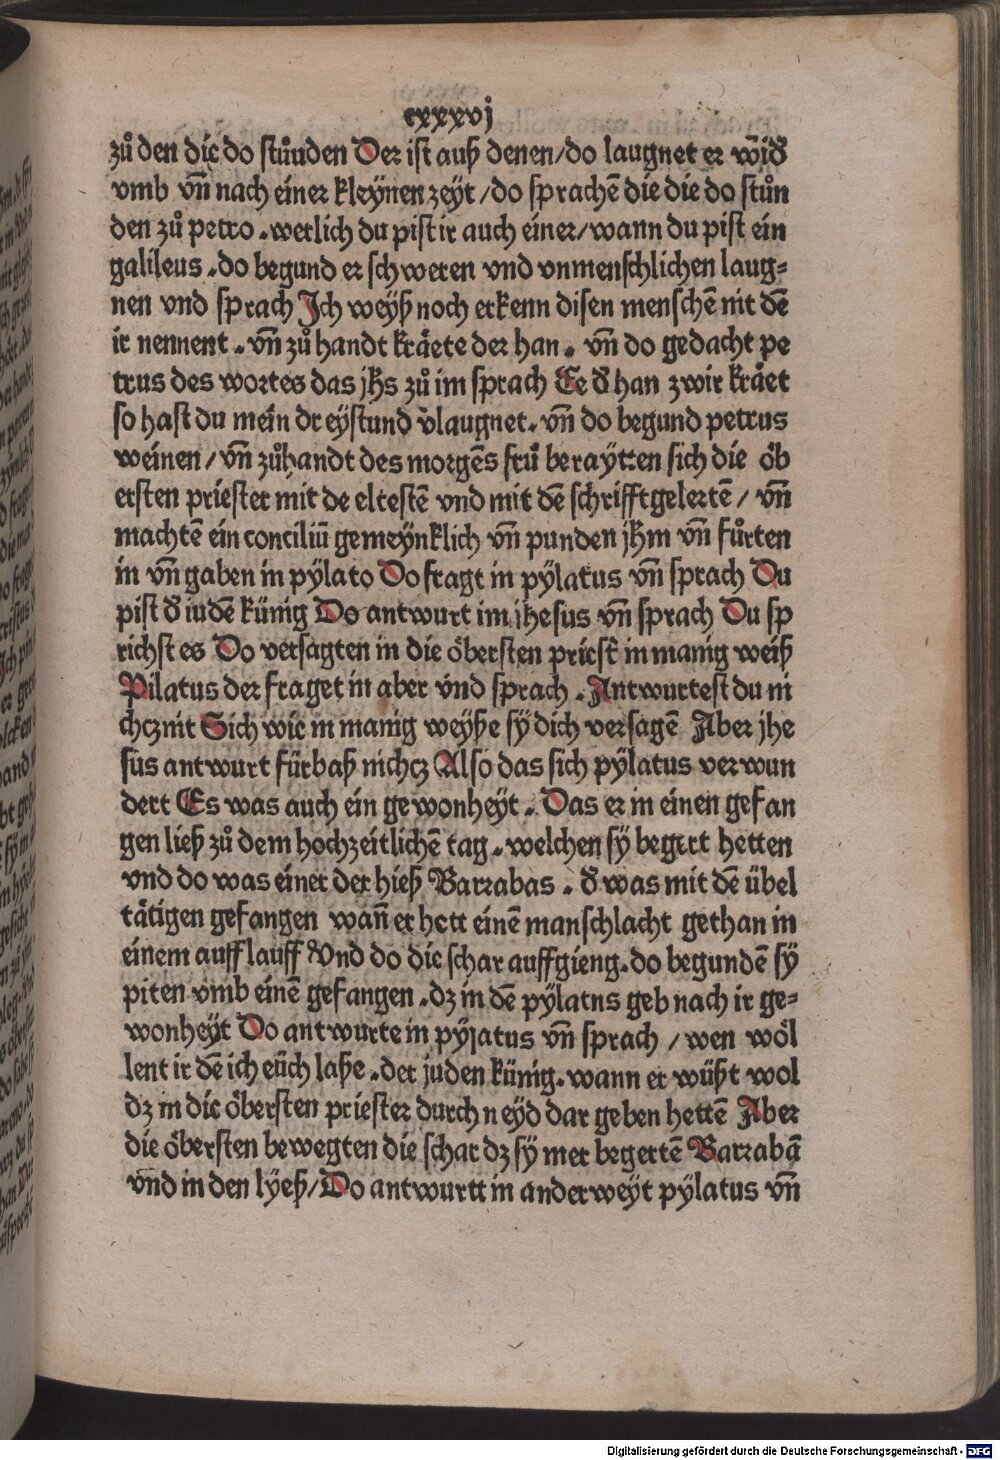 cxxxvj
zů den die do stůnden Der ist auß denen/do laugnet er wid̄
vmb vn̄ nach einer kleÿnen zeÿt/do sprachē die die do stůn
den zů petro.werlich du pist ir auch einer/wann du pist ein
galileus.do begund er schweren vnd vnmenschlichen laug⸗
nen vnd sprach Ich weÿß noch erkenn disen menschē nit dē
ir nennent.vn̄ zů handt kräete der han.vn̄ do gedacht pe
trus des wortes das jhs zů im sprach Ee d̄ han zwir kräet
so hast du mein dreÿstund v̄laugnet.vn̄ do begund petrus
weinen/vn̄ zůhandt des morgēs frü beraÿtten sich die öb
ersten priester mit de eltestē vnd mit dē schrifftgelertē/vn̄
machtē ein conciliū gemeÿnklich vn̄ punden jhm vn̄ fůrten
in vn̄ gaben in pÿlato Do fragt in pÿlatus vn̄ sprach Du
pist d̄ iudē künig Do antwurt im jhesus vn̄ sprach Du sp
richst es Do versagten in die öbersten priest̄ in manig weiß
Pilatus der fraget in aber vnd sprach.Antwurtest du ni
chcznit Sich wie in manig weÿße sÿ dich versagē Aber jhe
sus antwurt fürbaß nichcz Also das sich pÿlatus verwun
dert Es was auch ein gewonheÿt.Das er in einen gefan
gen ließ zů dem hochzeitlichē tag.welchen sÿ begert hetten
vnd do was einer der hieß Barrabas.d̄ was mit dē übel
tätigen gefangen wan̄ er hett einē manschlacht gethan in
einem aufflauff Vnd do die schar auffgieng.do begundē sÿ
piten vmb einē gefangen.dz in dē pÿlatns geb nach ir ge⸗
wonheÿt Do antwurte in pÿlatus vn̄ sprach/wen wöl
lent ir dē ich eüch laße.der juden künig.wann er wüßt wol
dz in die öbersten priester durch neÿd dar geben hettē Aber
die öbersten bewegten die schar dz sÿ mer begertē Barrabā
vnd in den lÿeß/Do antwurtt in anderweÿt pÿlatus vn̄
Digitalisierung gefördert durch die Deutsche Forschungsgemeinschaft - DFG